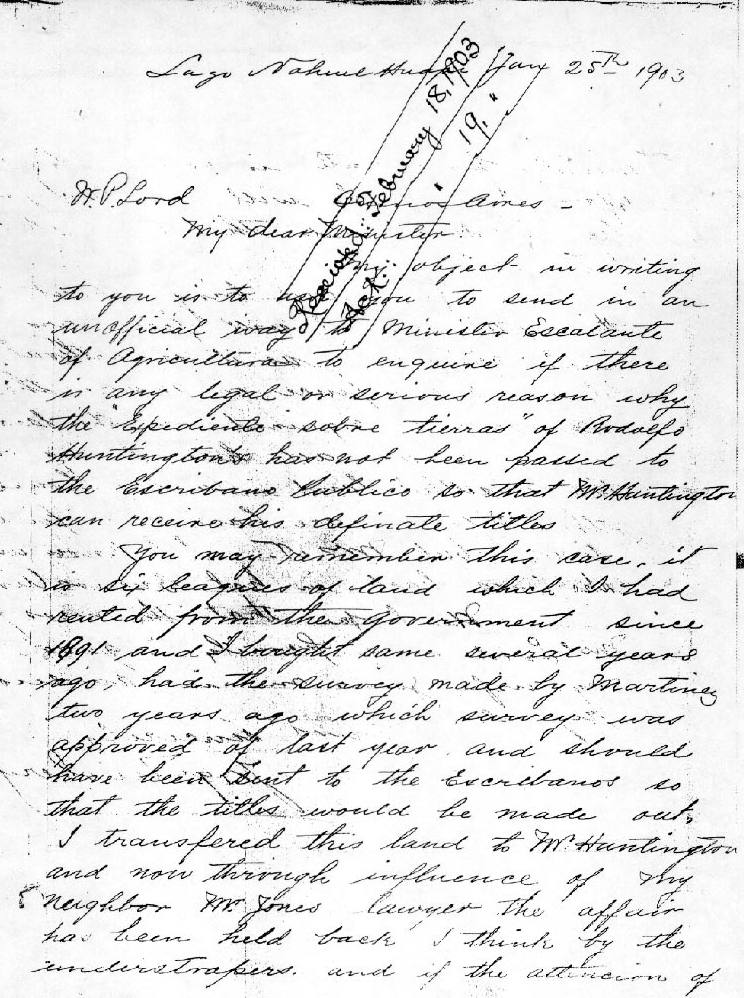 Lago Nahuel Huapi Jan 25th 1903
Received: February 18, 1903
Act.: " 19, "
W. P. Lord Buenos Aires -
My dear Minister.
My object in writing
to you is to use you to send in an
unofficial way to Minister Escalante
of Agricultura to enquire if there
is any legal or serious reason why
the "Epediente sobre tierras" of Rodolfo
Huntington's has not been passed to
the Escribano Publico so that Mr. Huntington
can receive his definate titles
You may remember this case, it
is six leagues of land which I had
rented from the government since
1891 and I bought same several years
ago, had the survey made by Martinez
two years ago which survey was
approved of last year and should
have been sent to the Escribanos so
that the titles would be made out.
I transfered this land to Mr. Huntington
and now through influence of my
neighbor Mr. Jones lawyer the affair
has been held back I think by the
understrapers. and if the attencion of